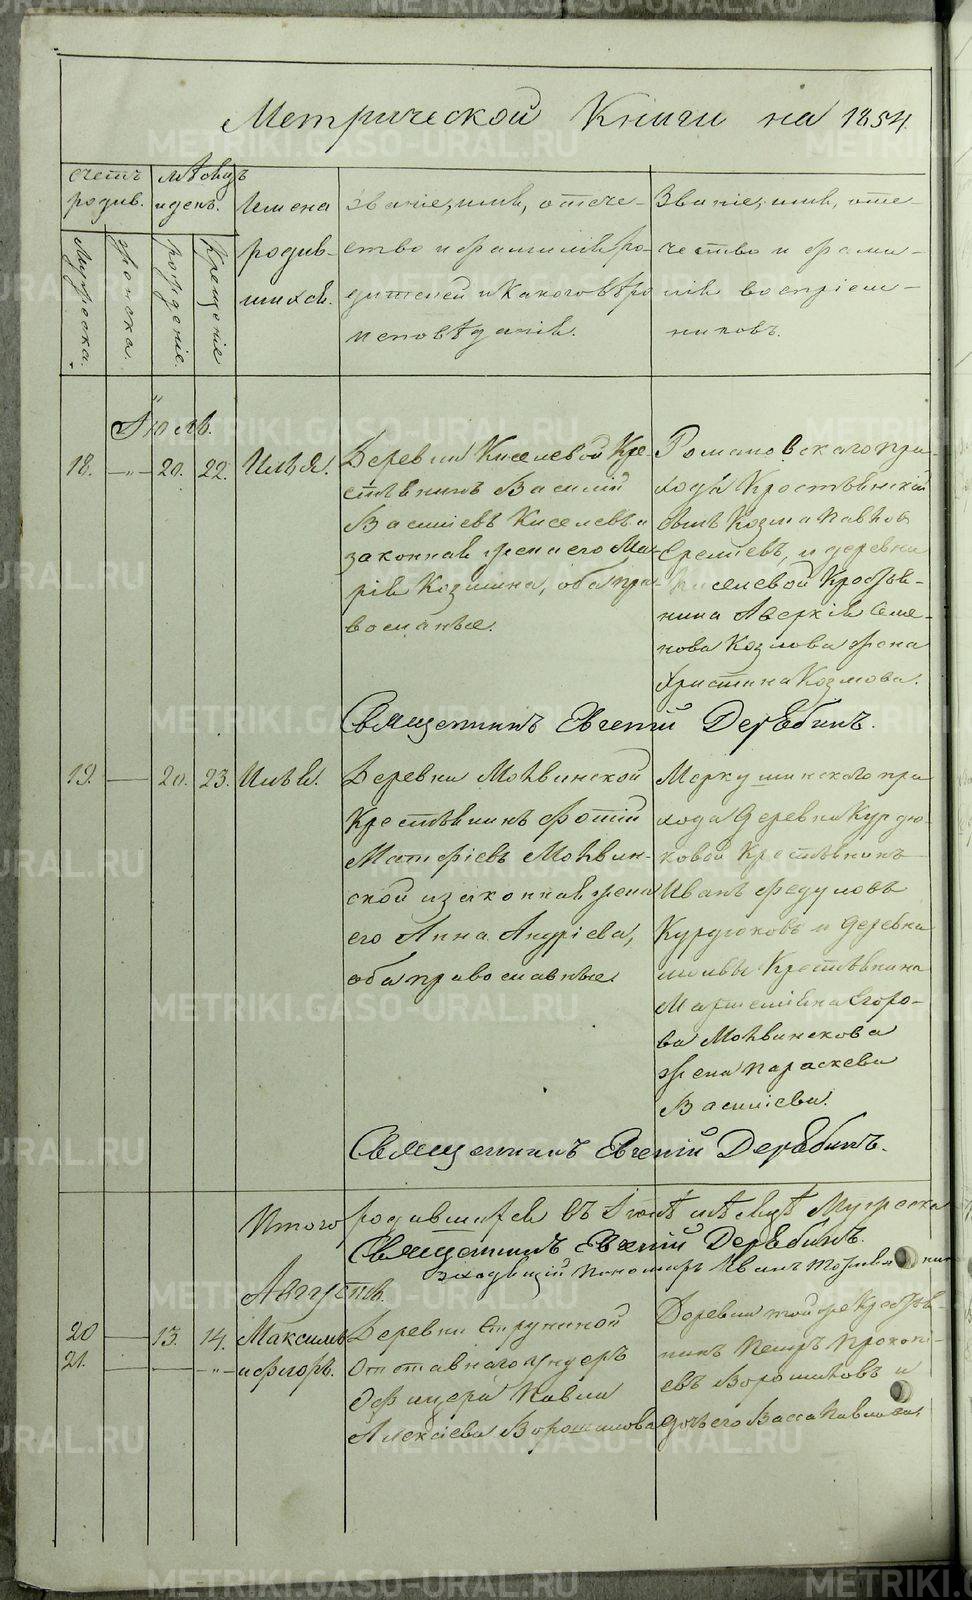 Метрической Книги на 1854.
счетъ родив.
мѣсяцъ и день.
Имена родив- шихся.
званіе, имя, отече-
ство и фамилія ро-
дителей и какого вѣро
исповѣданія.
Званіе, имя, оте-
чество и фами-
лія воспріем-
никовъ.
мужеска.
женска.
рожденіе.
Крещеніе
Іюль.
18. -"- 20. 22. Илья.
Деревни Киселевой Кре-
стьянинъ Василій
Васильевъ Киселевъ и
законная жена его Ма-
рія Козмина, оба пра-
вославные.
Романовскаго при-
хода Крестьянскій
сынъ Козма Павлов
Еремѣевъ, и деревни
Киселевой Крестья-
нина Аверкія Семе-
нова Козлова жена
Христина Козмова.
Священникъ Евгеній Дерябинъ.
19. — 20. 23. Илья.
Деревни Молвинской
Крестьянинъ Фотій
Матфіевъ Молвин-
ской и законная жена
его Анна Андріева,
оба православные.
Меркушинскаго при
хода деревни Курдю-
ковой Крестьянинъ
Иванъ Федуловъ
Курдюковъ и деревни
Крестьянина
Егоро-
ва Молвинскова
жена Параскева
Василіева.
Священникъ Евгеній Дерябинъ.
Итого родившихся въ Іюлѣ мѣсяцѣ Мужеска
Священникъ Евгеній Дерябинъ.
Пономарь Иванъ
Августъ.
20 — 13. 14. Максимъ
21. — — -"- и Егоръ.
Деревни Струниной
Отставнаго ундеръ
Офицера Павла
Алексіева Ворошилова
Деревни той же Крестья-
нинъ Петръ Прокопі-
евъ Ворошиловъ и
дочь его Васса Павлова.
METRIKI.GASO-URAL.RU